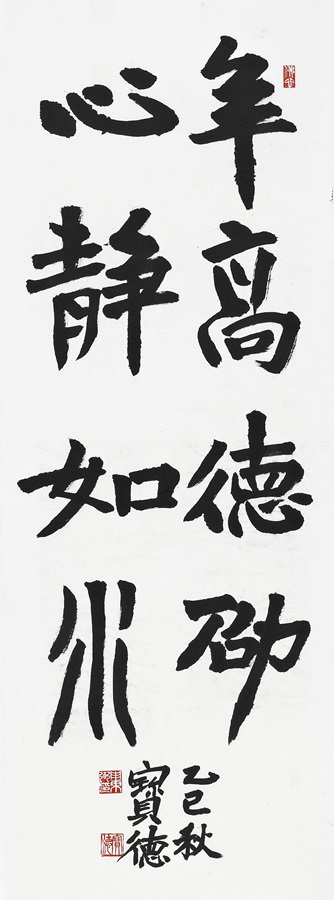 年高德劭
心静如水
乙巳秋
寶德